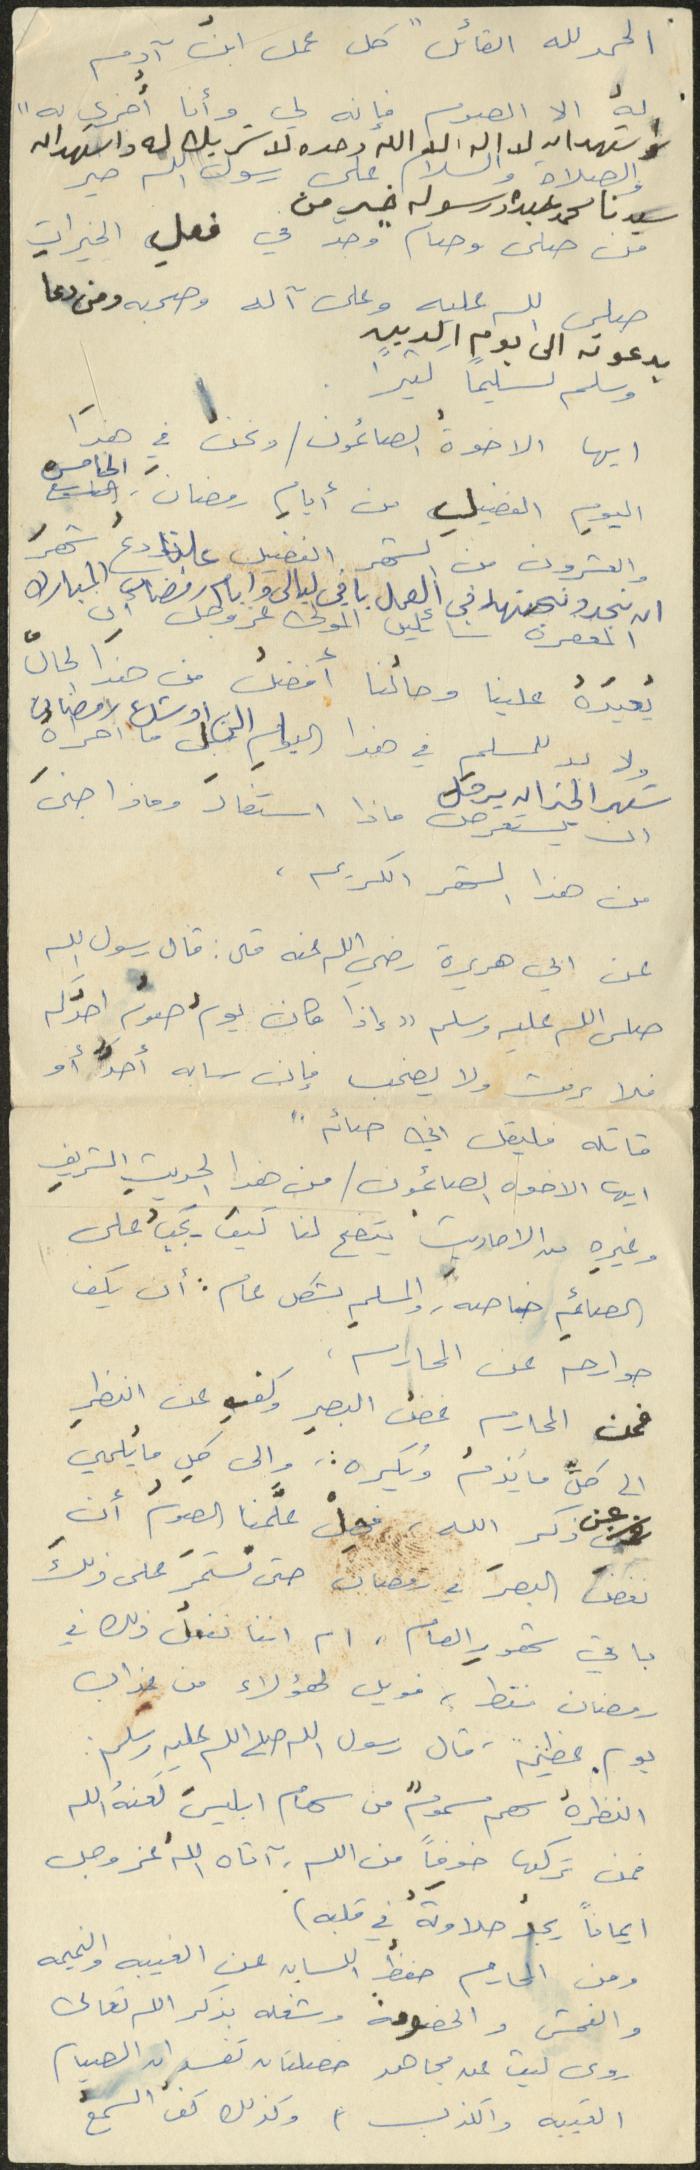 الحمد لله القائل " كل عمل ابن آدم
له الا الصوم فإنه لي وأنا أجزي به"
واشهد ان لا اله الا الله وحده لا شريك له واشهد ان
والصلاة والسلام على رسول الله خير
سيدنا محمد عبده ورسوله خير من
من صلى وصام وجدّ في فعل الخيرات
صلى الله عليه وعلى آله وصحبه ومن دعا
بدعوته الى يوم الدين
وسلم تسليماً كثيراً .
ايها الاخوة الصائمون / ونحن في هذا
الخامس
اليوم الفضيل من أيام رمضان،
والعشرون من الشهر الفضيل علينا
ان نجد ونجتهد في العمل باقي ليالي وايام رمضان المبارك
المغفرة سائلين المولى عز وجل ان
يعيده علينا وحالنا أفضل من هذا الحال
ولا بد للمسلم في هذا اليوم
شهر الخير ان يرحل
ان يستعرض ماذا استفاد وماذا جنى
من هذا الشهر الكريم ،
عن ابي هريرة رضي الله عنه قال : قال رسول الله
صلى الله عليه وسلم " إذا كان يوم صوم احدكم
فلا يرفث ولا يصخب فإن سابه أحد أو
قاتله فليقل اني صائم "
ايها الاخوه الصائمون / من هذا الحديث الشريف
وغيره من الاحاديث يتضح لنا كيف يجب على
الصائم خاصة، والمسلم بشكل عام : أن يكف
جوارحه عن المحارم ،
فمن المحارم غض البصر وكفه عن النظر
الى كل ما يُذم ويُكره : ، والى كل ما يلهي
عن ذكر الله ، فهل علّمنا الصوم أن
نغض البصر في رمضان حتى نستمر على ذلك
باقي شهور العام ، ام اننا نفعل ذلك في
رمضان فقط ، فويل لهؤلاء من عذاب
يوم عظيم ، قال رسول الله صلى الله عليه وسلم :
النظرة سهم مسموم من سهام ابليس لعنه الله
فمن تركها خوفاً من الله ، آتاه الله عز وجل
ايماناً يجد حلاوته في قلبه )
ومن المحارم حفظ اللسان عن الغيبه والنميمه
والفحش والخصومة وشغله بذكر الله تعالى
روى ليث عن مجاهد خصلتان تفسدان الصيام
الغيبه والكذب ) وكذلك كف السمع